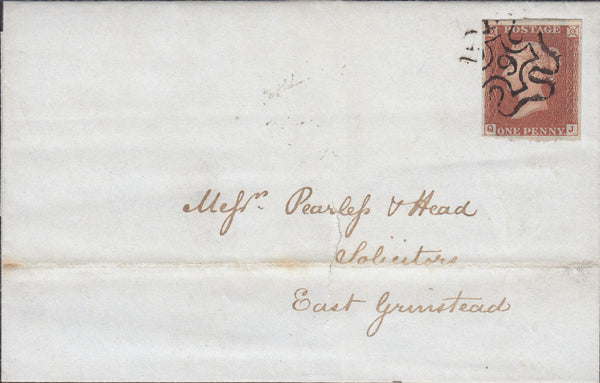 POSTAGE
6
Q J
ONE PENNY
Messrs. Pearless & Head
Solicitors
East Grinstead